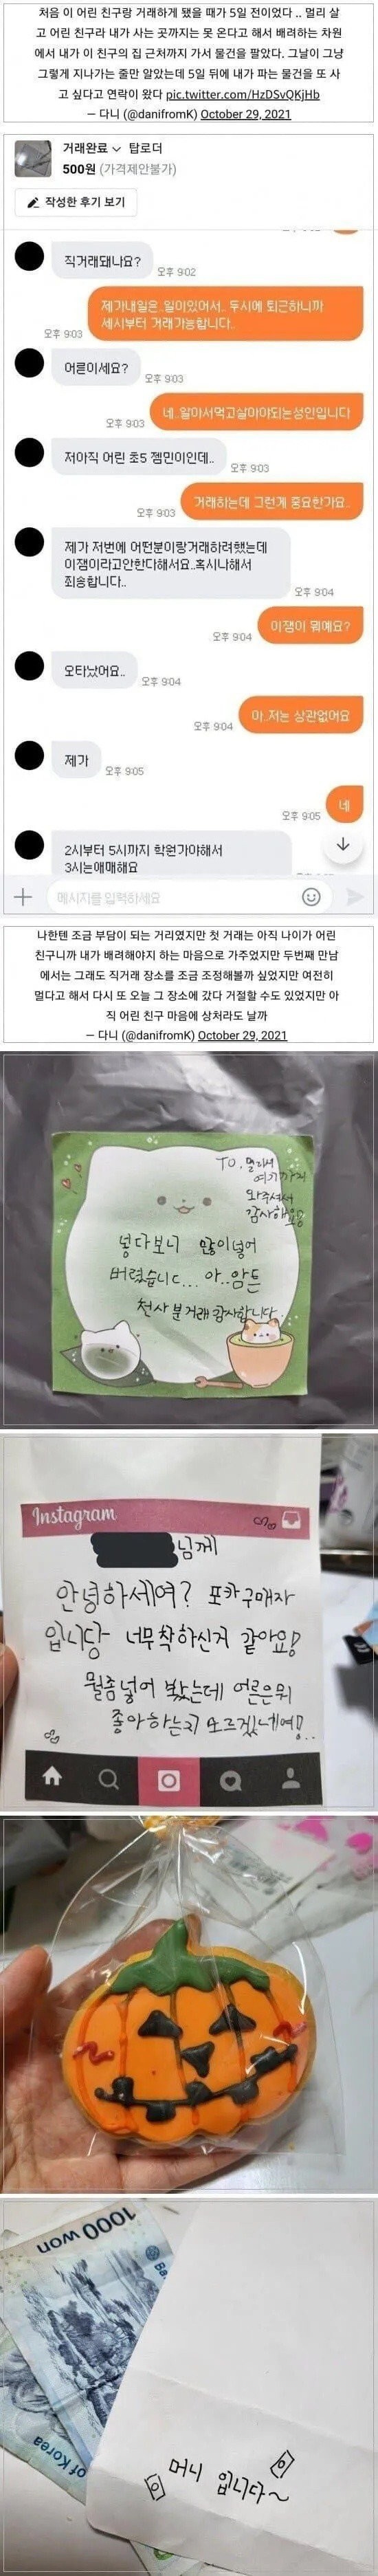 처음 이 어린 친구랑 거래하게 됐을 때가 5일 전이었다 .. 멀리 살
고 어린 친구라 내가 사는 곳까지는 못 온다고 해서 배려하는 차원
에서 내가 이 친구의 집 근처까지 가서 물건을 팔았다. 그날이 그냥
그렇게 지나가는 줄만 알았는데 5일 뒤에 내가 파는 물건을 또 사
고 싶다고 연락이 왔다 pic.twitter.com/HzDSvQKjHb
— 다니 (@danifromK) October 29, 2021
거래완료 탑로더
500원 (가격제안불가)
작성한 후기 보기
직거래돼나요?
오후 9:02
제가내일은..일이있어서.. 두시에 퇴근하니까
세시부터 거래가능합니다..
오후 9:03
어른이세요?
오후 9:03
네..알아서먹고살아야되는성인입니다
오후 9:03
저아직 어린 초5 젬민이인데..
오후 9:03
거래하는데 그런게 중요한가요..
오후 9:03
제가 저번에 어떤분이랑거래하려했는데
이잼이라고안한다해서요..혹시나해서
죄송합니다..
오후 9:04
이잼이 뭐예요?
오후 9:04
오타났어요..
오후 9:04
아..저는 상관없어요
오후 9:04
제가
오후 9:05
네
오후 9:05
2시부터 5시까지 학원가야해서
3시는애매해요
메시지를 입력하세요
나한텐 조금 부담이 되는 거리였지만 첫 거래는 아직 나이가 어린
친구니까 내가 배려해야지 하는 마음으로 가주었지만 두번째 만남
에서는 그래도 직거래 장소를 조금 조정해볼까 싶었지만 여전히
멀다고 해서 다시 또 오늘 그 장소에 갔다 거절할 수도 있었지만 아
직 어린 친구 마음에 상처라도 날까
— 다니 (@danifromK) October 29, 2021
TO. 멀리서
여기까지
와주셔서
감사해요
넣다보니 많이넣어
버렸습니다... 아..암튼
천사분거래 감사합니다.
Instagram
님께
안녕하세여? 포카구매자
입니당 너무착하신거 같아요!
뭘좀넣어 봤는데 어른은뭐
좋아하는지 모르겠네여!..
1000 won
of Korea
머니 입니다~